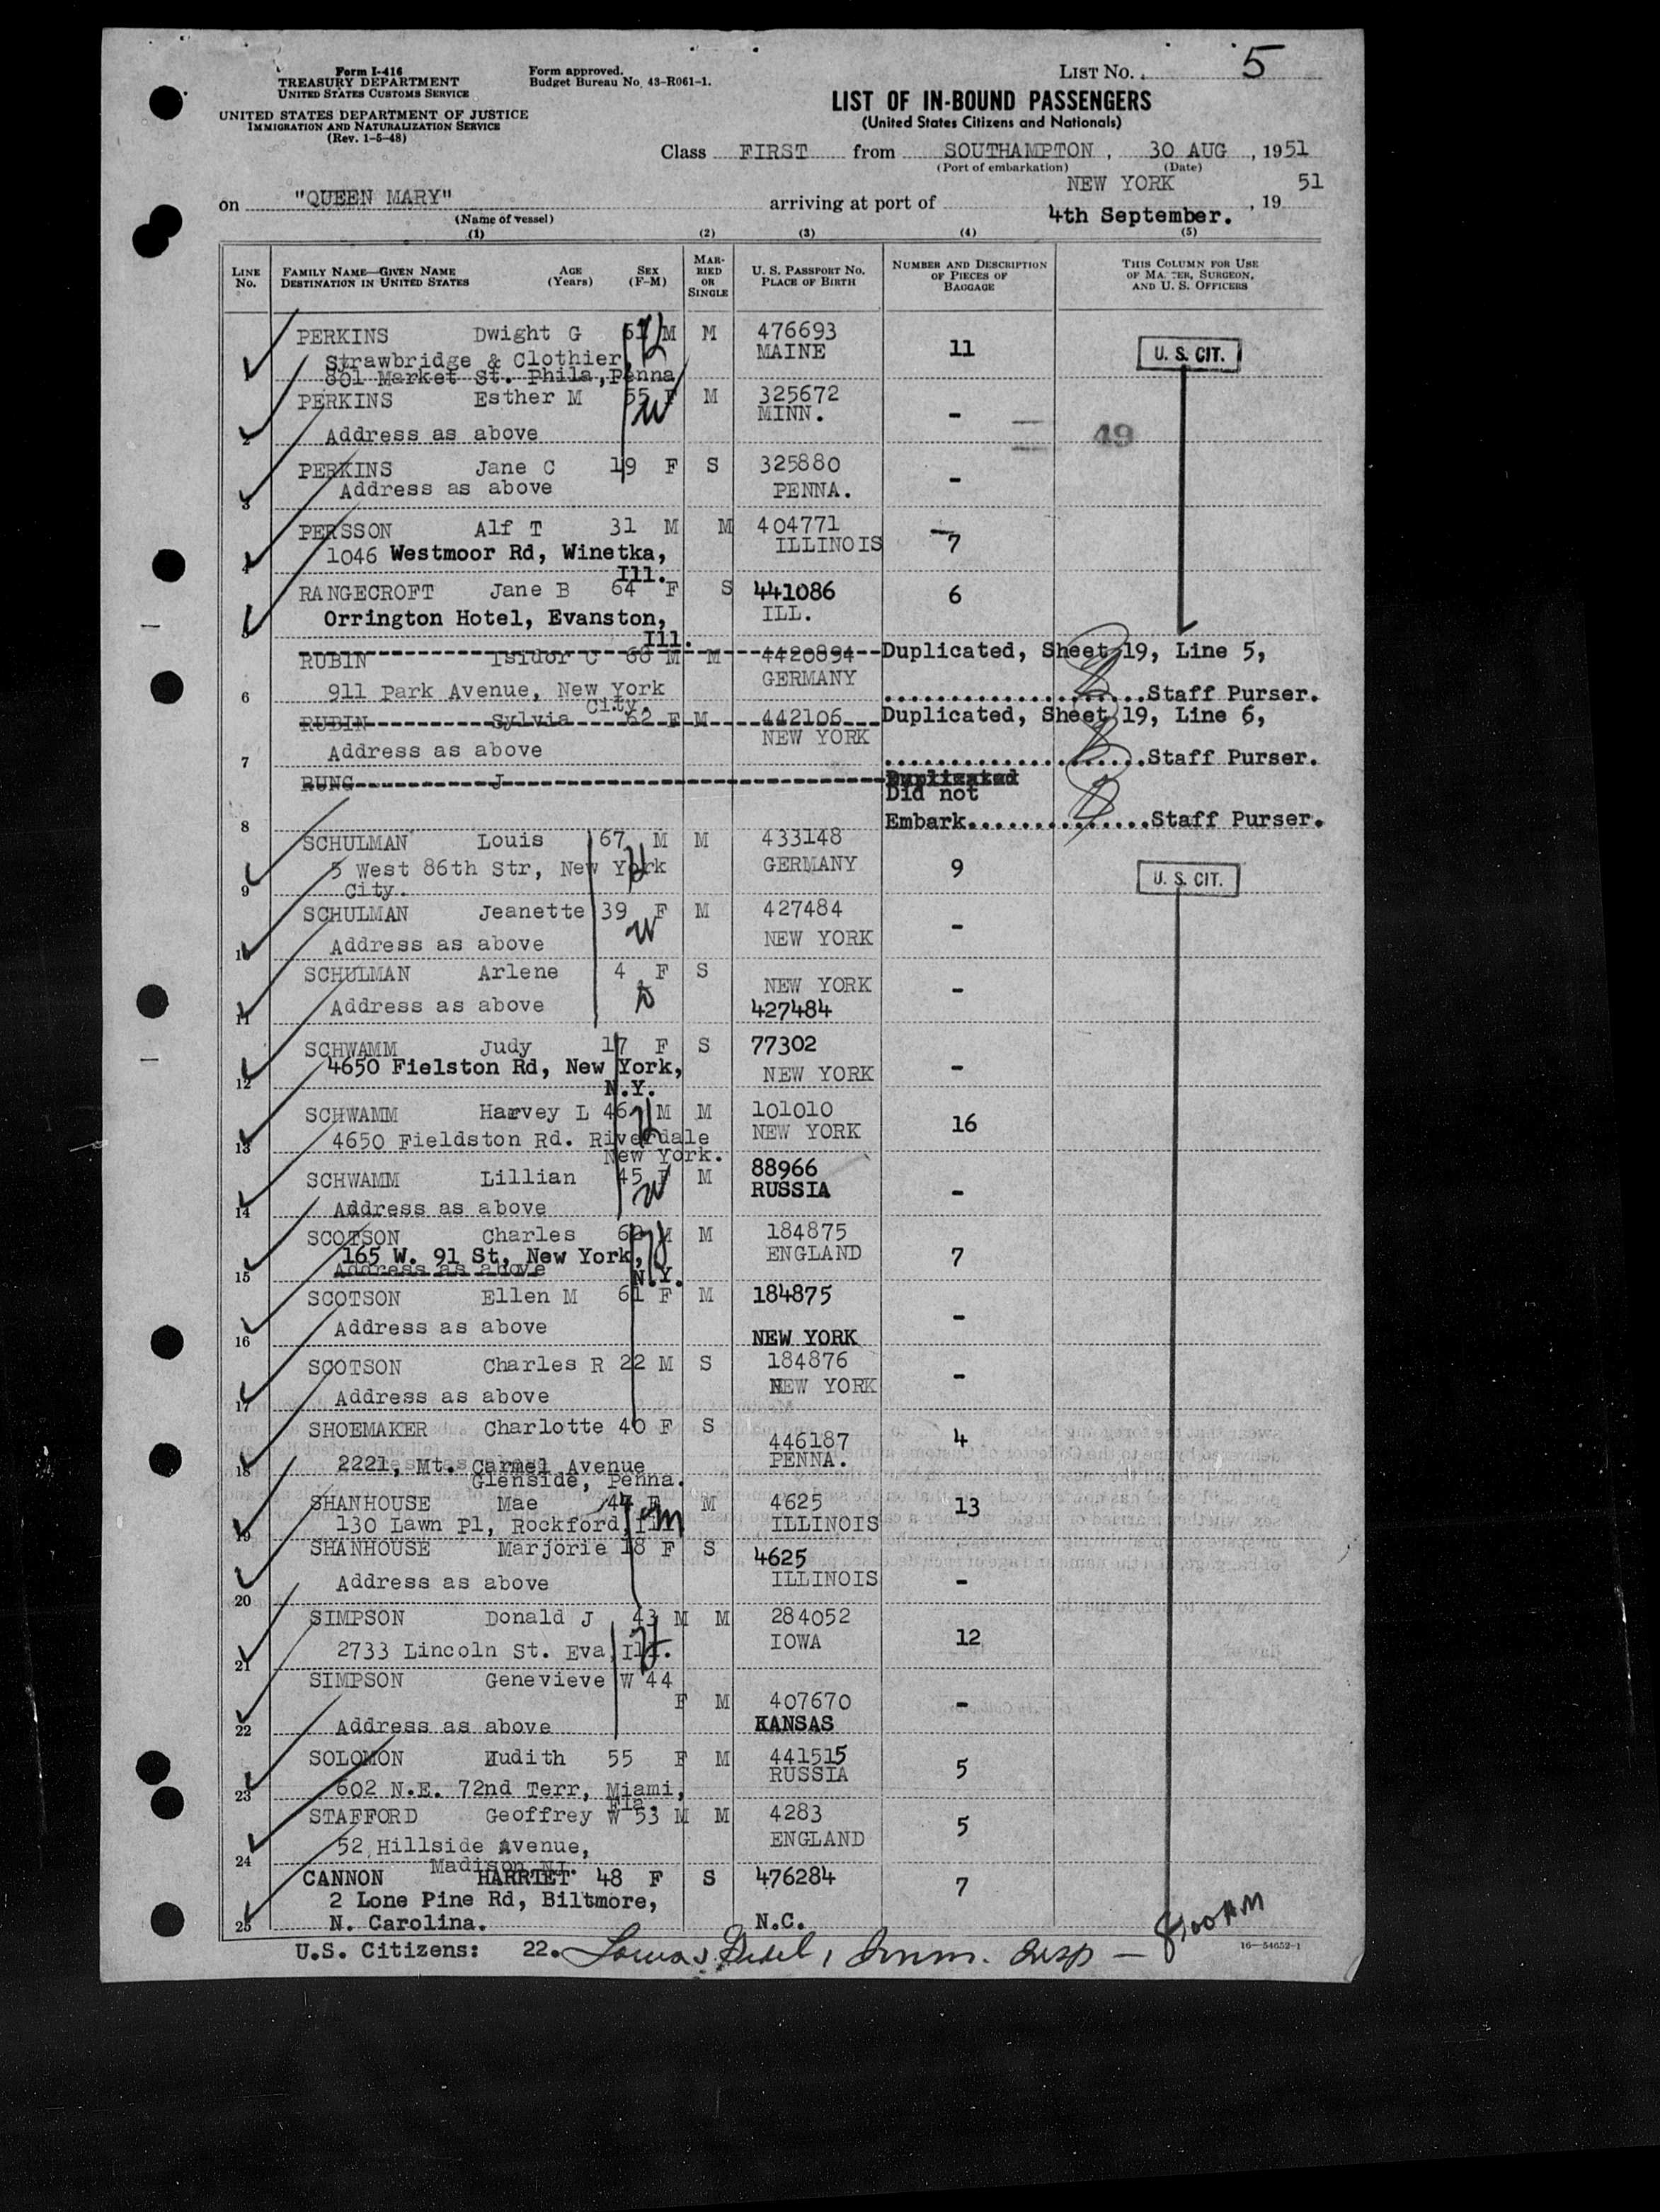 Form I-416
TREASURY DEPARTMENT
UNITED STATES CUSTOMS SERVICE
UNITED STATES DEPARTMENT OF JUSTICE
IMMIGRATION AND NATURALIZATION SERVICE
(Rev. 1-5-48)
Form approved.
Budget Bureau No. 43-R061-1.
LIST NO. 5
LIST OF IN-BOUND PASSENGERS
(United States Citizens and Nationals)
Class FIRST from SOUTHAMPTON, 30 AUG, 1951
(Port of embarkation) (Date)
on "QUEEN MARY" arriving at port of NEW YORK 4th September. , 19 51
(Name of vessel)
(1) (2) (3) (4) (5)
LINE NO. FAMILY NAME—GIVEN NAME DESTINATION IN UNITED STATES AGE (Years) SEX (F-M) MARRIED OR SINGLE U. S. PASSPORT NO. PLACE OF BIRTH NUMBER AND DESCRIPTION OF PIECES OF BAGGAGE THIS COLUMN FOR USE OF MASTER, SURGEON, AND U. S. OFFICERS
1 PERKINS Dwight G 61 M M 476693
Strawbridge & Clothier MAINE 11 U. S. CIT.
801 Market St. Phila, Penna
PERKINS Esther M 55 F M 325672
MINN. -
2 Address as above 49
PERKINS Jane C 19 F S 325880
3 Address as above PENNA. -
PERSSON Alf T 31 M M 404771
4 1046 Westmoor Rd, Winetka, Ill. ILLINOIS 7
RANGECROFT Jane B 64 F S 441086 6
Orrington Hotel, Evanston, Ill. ILL.
RUBIN Isidor C 68 M M 4420894 Duplicated, Sheet 19, Line 5,
6 911 Park Avenue, New York City. GERMANY Staff Purser.
RUBIN Sylvia 62 F M 442106 Duplicated, Sheet 19, Line 6,
7 Address as above NEW YORK Staff Purser.
RUNG J Duplicated
Did not
8 Embark Staff Purser.
SCHULMAN Louis 67 M M 433148
9 5 West 86th Str, New York City. GERMANY 9 U. S. CIT.
SCHULMAN Jeanette 39 F M 427484
10 Address as above NEW YORK -
SCHULMAN Arlene 4 F S NEW YORK -
11 Address as above 427484
SCHWAMM Judy 17 F S 77302
12 4650 Fielston Rd, New York, N.Y. NEW YORK -
SCHWAMM Harvey L 46 M M 101010
13 4650 Fieldston Rd. Riverdale New York. NEW YORK 16
SCHWAMM Lillian 45 F M 88966
RUSSIA -
14 Address as above
SCOTSON Charles 62 M M 184875
165 W. 91 St, New York, N.Y. ENGLAND 7
15 Address as above
SCOTSON Ellen M 61 F M 184875
16 Address as above NEW YORK -
SCOTSON Charles R 22 M S 184876
17 Address as above NEW YORK -
SHOEMAKER Charlotte 40 F S 446187 4
18 2221, Mt. Carmel Avenue PENNA.
Glenside, Penna.
SHANHOUSE Mae 44 F M 4625 13
19 130 Lawn Pl, Rockford, Ill ILLINOIS
SHANHOUSE Marjorie 18 F S 4625
20 Address as above ILLINOIS -
SIMPSON Donald J 43 M M 284052
21 2733 Lincoln St. Eva, Ill. IOWA 12
SIMPSON Genevieve W 44 F M 407670 -
22 Address as above KANSAS
SOLOMON Judith 55 F M 441515
RUSSIA 5
23 602 N.E. 72nd Terr, Miami, Fla.
STAFFORD Geoffrey W 53 M M 4283
24 52 Hillside Avenue, ENGLAND 5
Madison NJ.
CANNON HARRIET 48 F S 476284 7
2 Lone Pine Rd, Biltmore,
25 N. Carolina. N.C.
U.S. Citizens: 22. Imm. Insp — 8:00 AM
16—54652-1